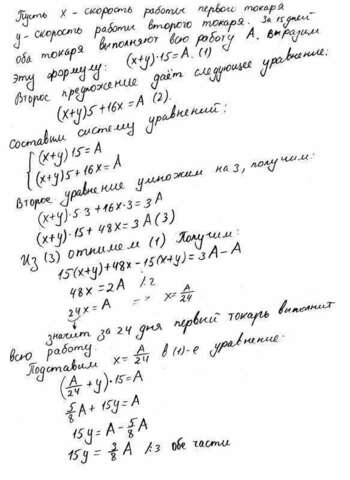 Пусть x - скорость работы первого токаря
y - скорость работы второго токаря. За 15 дней
оба токаря выполняют всю работу A. Выразим
эту формулу: (x+y)·15=A. (1)
Второе предложение даёт следующее уравнение:
(x+y)5+16x=A (2).
Составим систему уравнений:
{(x+y)15=A
{(x+y)5+16x=A
Второе уравнение умножим на 3, получим:
(x+y)·5·3+16x·3=3A
(x+y)·15+48x=3A (3)
Из (3) отнимем (1) Получим:
15(x+y)+48x-15(x+y)=3A-A
48x=2A /:2
24x=A => x=A/24
значит за 24 дня первый токарь выполнит
всю работу.
Подставим x=A/24 в (1)-е уравнение:
(A/24+y)·15=A
5/8A+15y=A
15y=A-5/8A
15y=3/8A /:3 обе части